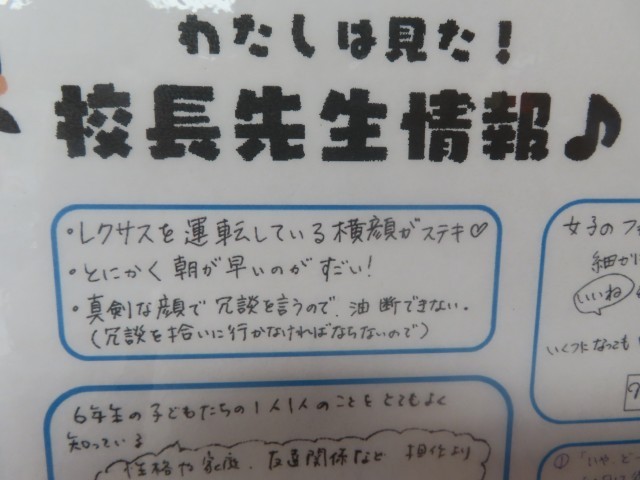 わたしは見た!
校長先生情報♪
・レクサスを運転している横顔がステキ♡
・とにかく朝が早いのがすごい!
・真剣な顔で冗談を言うので、油断できない。
(冗談を拾いに行かなければならないので)
女子の
細かい
いいね
いくつになっても
6年生の子どもたちの1人1人のことをとてもよく
知っている
性格や家庭、友達関係など
①「いや、どっ